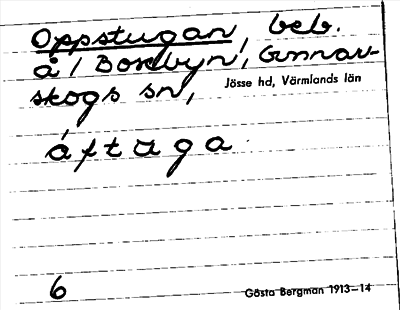 Oppstugan, beb.
å / Bordbyn, Gunnar-
skogs sn,
Jösse hd, Värmlands län
åftaga
6
Gösta Bergman 1913–14